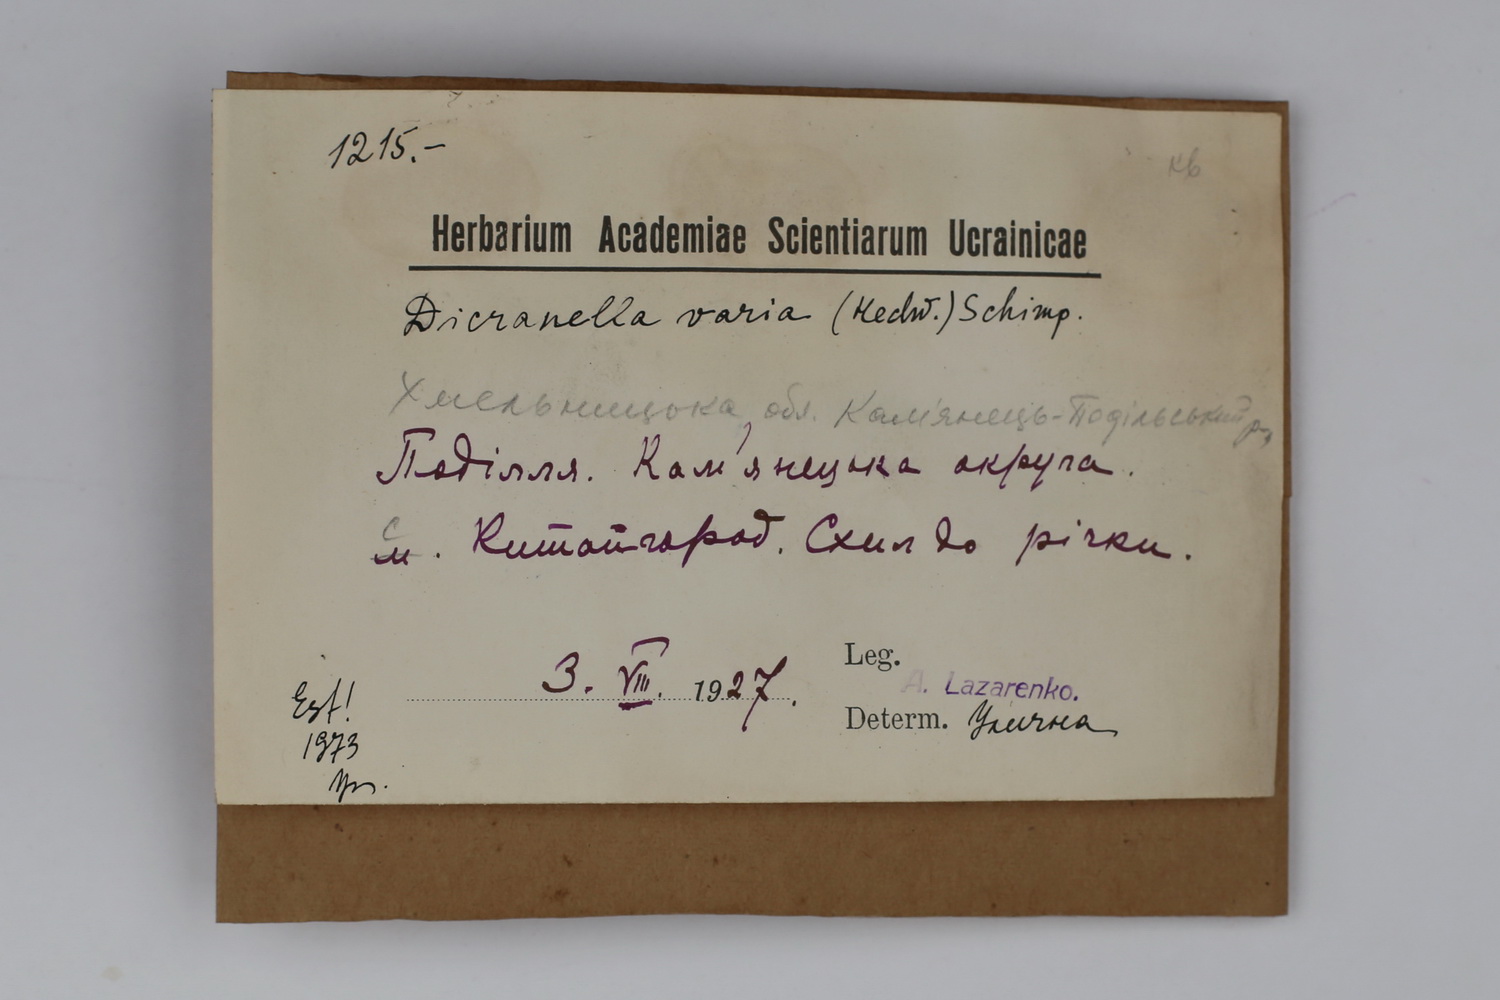 1215.–
кв
Herbarium Academiae Scientiarum Ucrainicae
Dicranella varia (Hedw.) Schimp.
Хмельницька обл. Кам'янець-Подільський р-н
Поділля. Кам'янецька округа.
с
м. Китайгород. Схил до річки.
3. VIII. 1927.
Leg.
A. Lazarenko.
Determ. Улична
Est!
1973